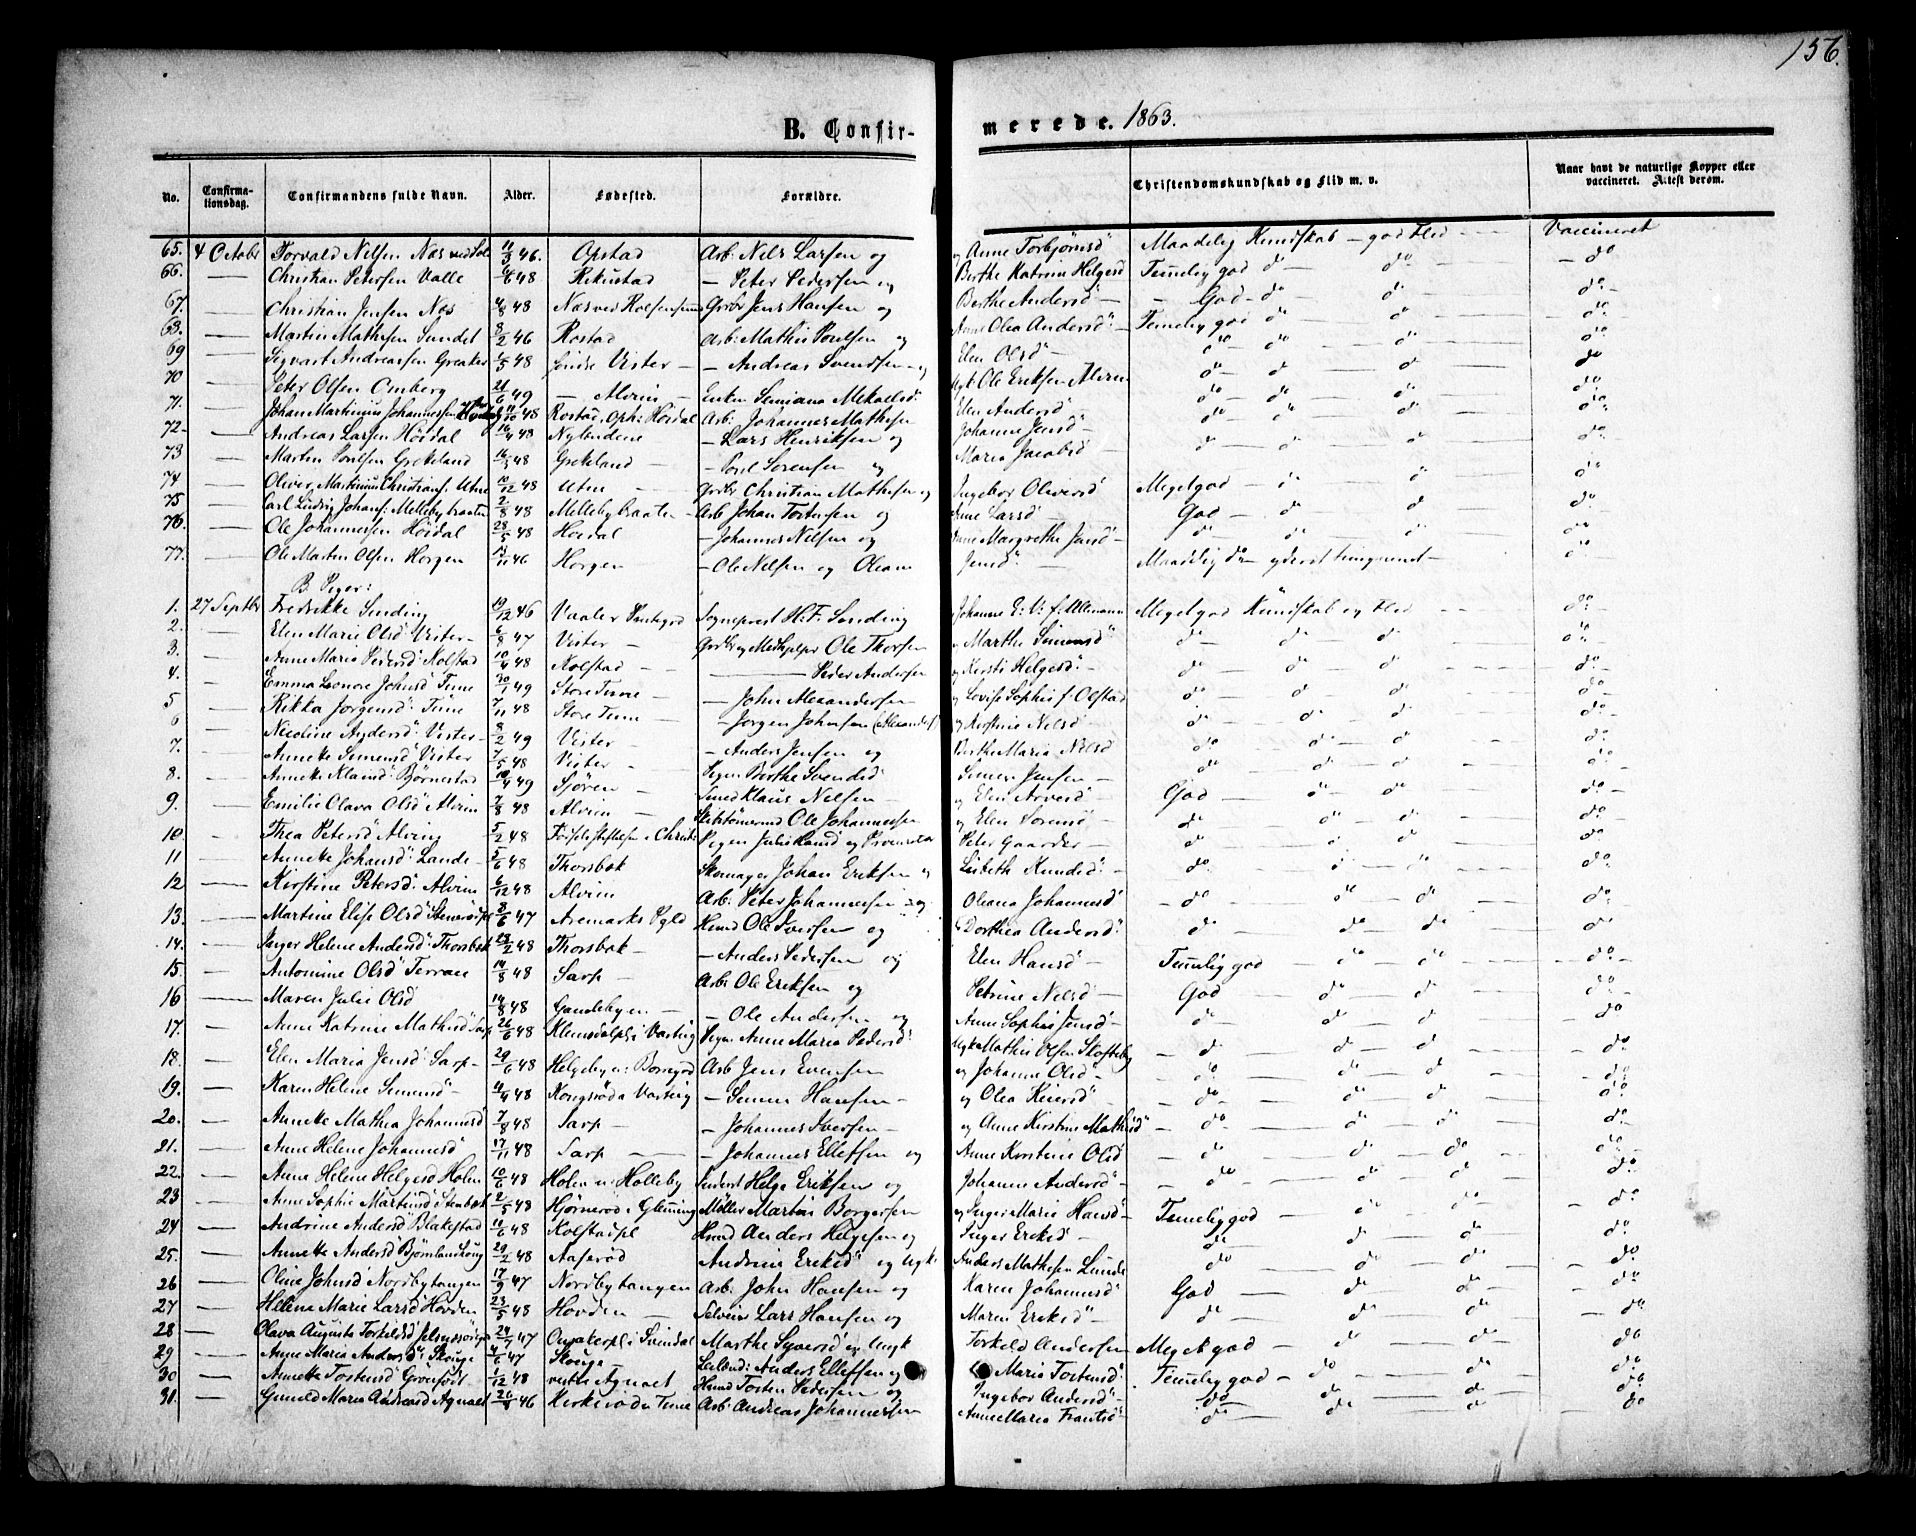 156.
B. Confir-
merede. 1863.
No. Confirma-tionsdag. Confirmandens fulde Navn. Alder. Fødested. Forældre. Christendomskundskab og Flid m. v. Naar havt de naturlige Kopper eller vaccineret. Attest derom.
65. 4 Octobr Torvald Nilsen Næs 11/3 46. Opstad Arb: Nils Larsen og Anne Torbjørnsd Maadelig Kundskab - god Flid - - - Vaccineret
66. — Christian Petersen Valle 48 Rikustad — Peter Pedersen og Berthe Katrine Helgesd Temmelig god do — do — do
67. — Christian Jensen Næs 4/8 48 Grbr Jens Hansen og Berthe Andersd — God - do — do — do
68. — Martin Mathesen Sundet 8/2 46 Rostad Arb: Mathis Poulsen og Anne Olea Andersd Temmelig god do — do — do
69 — Sigvart Andreassen Greaker 1/5 48 Vister — Andreas Svendsen og Elen Olsd — do do — do — do
70 — Peter Olsen Omberg 21/6 49 — Alvim Enken Semiana Mikaelsd Ugk: Ole Eriksen Alvim — do — do — do do
71. — Johan Martinius Johannessen 48 Rostad, Oph: Høidal Arb: Johannes Mathesen Elen Andersd — do — do — do do
72 — Andreas Larsen Høidal 16/4 48 Nylandene — Lars Henriksen og Johanne Jensd — do do — do do
73 — Martin Poulsen Grekeland 16/3 48 Grekeland — — Poul Sørensen og Maria Jacobsd do — do — do do
74 — Oliver Martinius Christians: Utne 10/12 48 Utne — Grbr Christian Mathesen og Ingebor Oliversd Meget god — do — do do
75 — Carl Ludvig Johans: Mellebybraaten 2/8 48 Mellebybraaten — Arb Johan Torstensen og Anne Larsd — God — do — do do
76. — Ole Johannessen Høidal 28/5 48 Høidal — Johannes Nilsen og Anne Margrethe Jensd do do — do do
77. — Ole Martin Olsen Horgen 13/11 46 Horgen — Ole Nilsen og Oleane Jensd Maadelig do — yderst tungnemt — do
B. Piger:
1. 27 Septbr Fredrikke Sinding 19/12 46 Vaaler Præstegrd Sogneprest H. F. Sinding Johanne E: V: f. Ullmann Meget god Kundskab og Flid - - - do
2. — Elen Marie Olsd Vister — 6/8 47 Vister — Grbr og Medhjelper Ole Thorsen og Marthe Simensd — do — do — do do
3. — Anne Maria Pedersd Kolstad 10/4 48 Kolstad — — — Peder Andersen og Kersti Helgesd — do — do do do
4. — Emma Leonore Johnsd Tune 30/1 49 Store Tune — — John Alexandersen og Lovise Sophie f. Olstad do — do — do do
5 — Rikka Jørgensd Tune 7/11 48 Store Tune — — Jørgen Johnsen (Alexanders) og Kirstine Nilsd — do do do do
6 — Nicoline Andersd Vister — 8/2 49 Vister — — Anders Jensen og Berthe Maria Nilsd — do — do — do do
7. — Annette Simensd Vister 7/5 48 Vister — Pigen Berthe Svendsd Simen Jensen — — do — do — do do
8. — Annette Klausd Bjørnestad 10/4 49 Sjøren — Smed Klaus Nilsen og Elen Arvesd — God — do — do do
9. — Emilie Olava Olsd Alvim 7/8 48 Alvim — Skibstømmermd Ole Johannessen og Elen Sørensd — do — do — do do
10. — Thea Petersd Alvim 5/2 48 Fødselsstiftelsen i Christ: Peter Gaarder — do — do — do do
11 — Annette Johansd Lande — 5/6 48 Thorsbæk Skomager Johan Eriksen og Lisbeth Knudsd — do. — do — do do
12 — Kirstine Petersd Alvim 6/12 48 Alvim Arb: Peter Johannessen og Oleana Johannesd — do — do — do do
13. — Martine Elise Olsd 8/6 47 Aremarks Pgld Hmd Ole Iversen og Dorthea Andersd do — do — do do
14. — Inger Helene Andersd Thorsbæk 23/2 48 Thorsbæk — — Anders Pedersen og Elen Hansd — Temmelig god — do — do do
15. — Antonine Olsd Ferran 14/8 48 Sarp — Arb: Ole Eriksen og Petrine Nilsd — God — do — do do
16 — Maren Julie Olsd 14/8 48 Gamlebyen — — Ole Andersen og Anne Sophie Jensd — do — do — do do
17. — Anne Katrine Mathisd Sarp 26/6 48 Klemsdalpl i Varteig Pigen Anne Maria Pedersd Ugk Mathis Olsen Skofteby — do — do — do do
18. — Elen Maria Jensd Sarp — 29/6 48 Helgeby u: Borregrd Arb Jens Evensen og Johanne Olsd — do — do — do do
19. — Karen Helene Simensd — 4/4 48 Kongsrøda Varteig — Simen Hansen — og Olea Keiersd — do — do — do do
20. — Annette Mathea Johannesd 7/8 48 Sarp — — Johannes Iversen — og Anne Kirstine Mathisd — do — do — do do
21. — Anne Helene Johannesd 17/11 48 Sarp — — Johannes Ellefsen og Anne Kirstine Olsd — do — do — do do
22. — Anne Helene Helgesd Holen 10/6 48 Holen u: Holleby Helge Eriksen og Johanne Andersd — do — do — do do
23 — Anne Sophie Martinsd Stenbæk 2/5 48 Hjørnerød i Glemmig Møller Martin Borgersen og Inger Marie Hansd — Temmelig god — do — do do
24 — Andrine Andersd Blakestad 10/6 48 Kolstadpl Hmd Anders Helgesen og Inger Eriksd — do — do — do do
25. — Annette Andersd 29/2 48 Aaserød Andrine Eriksd og Ugk: Anders Mathesen Lunde do — do — do do
26 — Oline Johnsd Nordbytangen 17/9 47 Nordbytangen Arb. John Hansen og Karen Johannesd God — do — do do
27 — Helene Marie Larsd Hovden 23/5 48 Hovden — Selveier Lars Hansen og Maren Eriksd — do — do — do do
28 — Olava Augusta Torkildsd 24/7 47 i Svindal Marthe Syversd og Ungk Torkeld Andersen Meget god — do — do do
29 — Anne Maria Andersd Skouge 4/6 47 Skouge Leilend: Anders Ellefsen og Maria Torstensd Temmelig god — do — do do
30 — Annette Torstensd 1/12 48 vestre Agnalt Hmd Torsten Pedersen og Ingebor Andersd — do — do — do do
31. — Gunild Maria Andreasd Agnalt 46 Kirkerød i Tune Arb: Andreas Johannessen Anne Maria Frantsd — do — do — do do